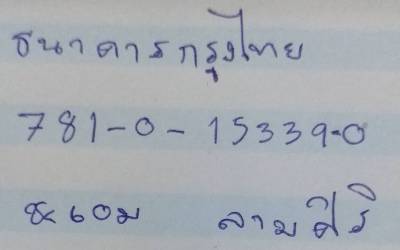 ธนาคารกรุงไทย
781-0-15339-0
ลามศิริ